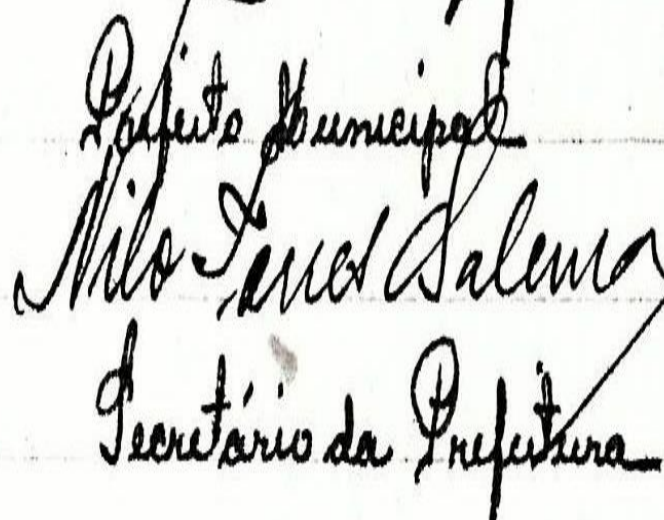 Prefeito Municipal
Nilo Salema
Secretário da Prefeitura